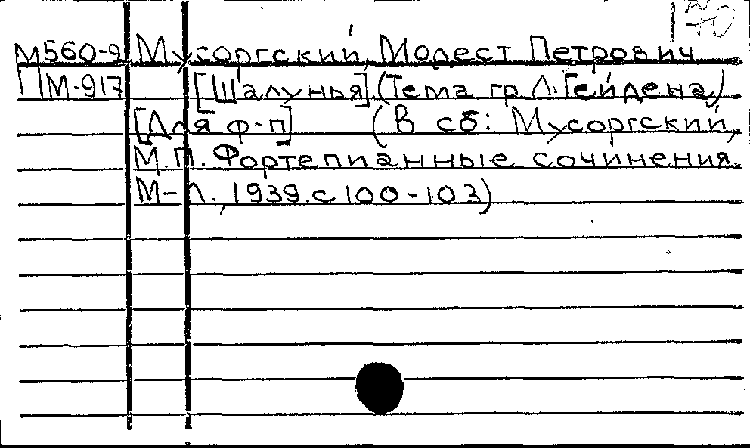 70
М560-9 Мусоргский, Модест Петрович
ПМ-917 [Шалунья] (Тема гр. Л. Гейдена)
[Для ф-п] (В сб: Мусоргский,
М.П. Фортепианные сочинения.
М-Л., 1939. с 100-103)